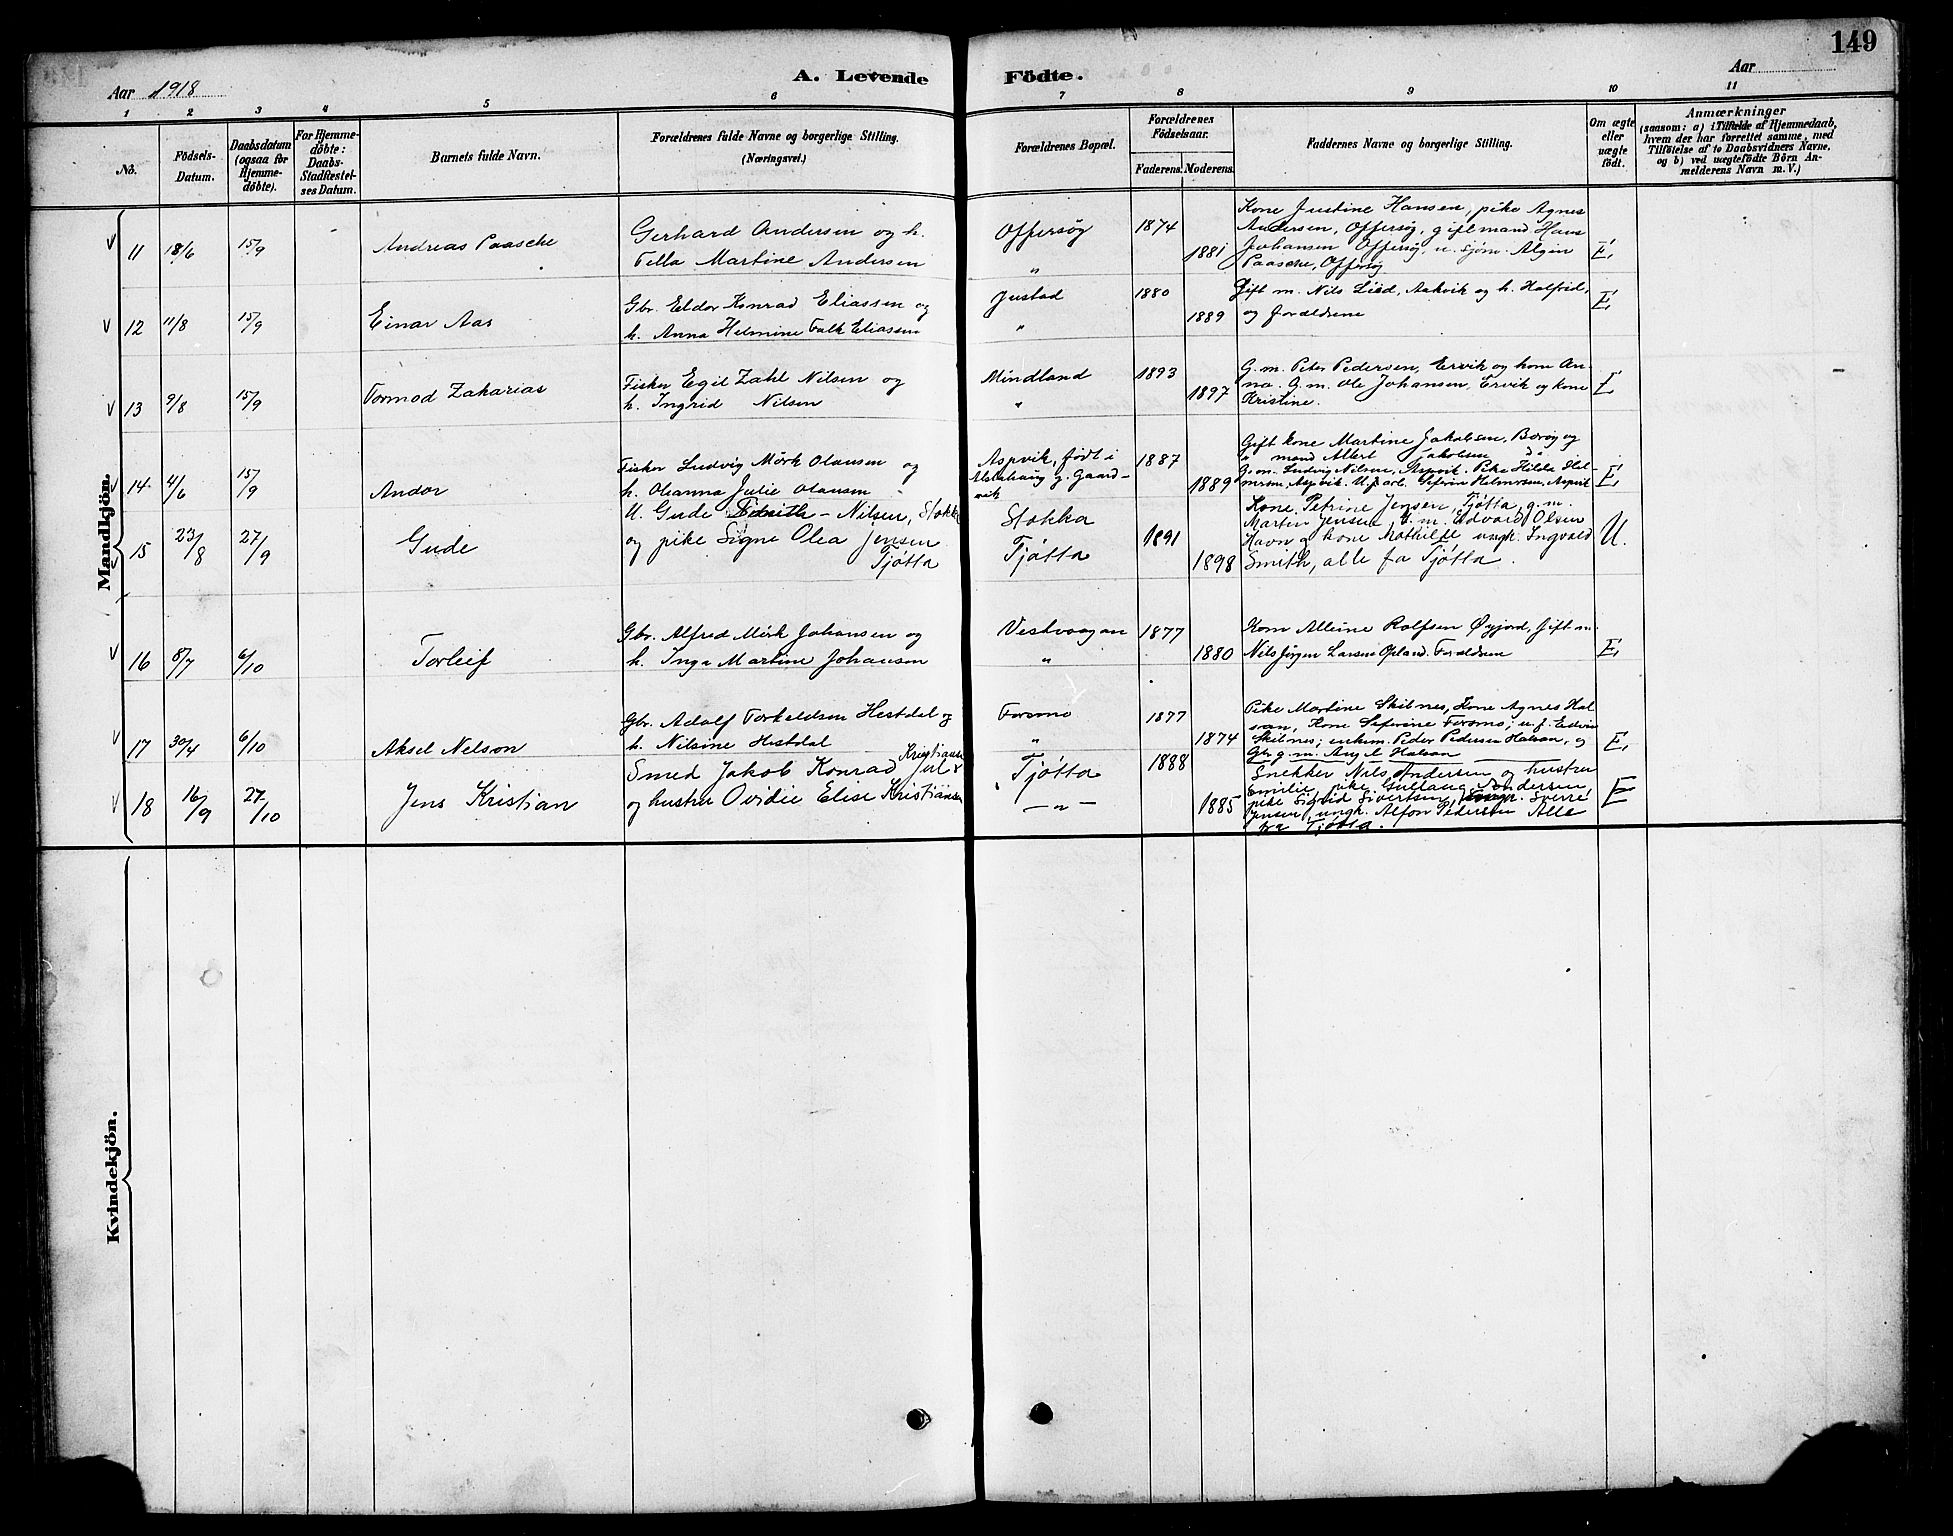 149
A. Levende Födte.
Aar 1918
Aar
1 2 3 4 5 6 7 8 9 10 11
No.
Födsels-Datum.
Daabsdatum (ogsaa for Hjemmedöbte).
For Hjemmedöbte: Daabs-Stadfæstelses Datum.
Barnets fulde Navn.
Forældrenes fulde Navne og borgerlige Stilling.
(Næringsvei.)
Forældrenes Bopæl.
Forældrenes Födselsaar.
Faderens. Moderens.
Faddernes Navne og borgerlige Stilling.
Om ægte eller uægte födt.
Anmærkninger
(saasom: a) i Tilfælde af Hjemmedaab, hvem der har forrettet samme, med Tilföielse af to Daabsvidners Navne, og b) ved uægtefödte Börn Anmelderens Navn m. V.)
Mandkjön.
11 18/6 15/9 Andreas Paasche
Gerhard Andersen og h.
Tella Martine Andersen
Offersøg
"
1874
1881
Kone Justine Hansen, pike Agnes
Andersen, Offersøg, gift mand Hans
Johansen Offersøg, u. sjöm. Algin
Paasche, Offersøg
E.
12 11/8 15/9 Einar Aas
Gbr. Eldor Konrad Eliassen og
h. Anna Helmine Falk Eliassen
Justad
"
1880
1889
Gift m. Nils Lied, Aakvik og h. Halfrid,
og forældrene
E.
13 9/8 15/9 Tormod Zakarias
Fisker Egil Zahl Nilsen og
h. Ingrid Nilsen
Mindland
"
1893
1897
G. m. Peter Pedersen, Ervik og kone An-
na. G. m. Ole Johansen, Ervik og kone
Kristine.
E
14 4/6 15/9 Andor
Fisker Ludvig Mörk Olausen og
h. Olianna Julie Olausen
Aspvik, födt i
Alstahaug g. Gaard-
vik
1887
1889
Gift kone Martine Jakobsen, Barøg og
mand Albert Jakobsen
G. m. Ludvig Nilsen, Aspvik. Pike Hilda Hel-
mersen, Aspvik. U. f. arb. Seferin Helmersen, Aspvik
E.
15 23/8 27/9 Gude
U. Gude Nilsen, Stokka
og pike Signe Olea Jensen
Tjøtta
Stokka
Tjøtta
1891
1898
Kone Petrine Jensen, Tjøtta, g. m.
Martin Jensen, g. m. Edvard Olsen
Havn og kone Mathilde ungk. Ingvald
Smith, alle fa Tjøtta.
U.
16 8/7 6/10 Torleif
Gbr. Alfred Mörk Johansen og
h. Inga Martine Johansen
Vestvaagan
"
1877
1880
Kone Alleine Rolfsen Øyjord, Gift m.
Nils Jörgen Larsen Opland. Forældrene
E.
17 30/4 6/10 Aksel Nelson
Gbr. Adolf Torkeldsen Hestdal og
h. Nilsine Hestdal
Forsmo
"
1877
1874
Pike Martine Skilnes, Kone Agnes Hal
san, Kone Seferine Forsmo; u. f. Edvin
Skilnes; enkem. Peder Pedersen Halsan, og
Gbr. g. m. Angel Halsan
E.
18 16/9 27/10 Jens Kristian
Smed Jakob Konrad Juel Kristiansen
og hustru Ovidie Elise Kristiansen
Tjøtta
— " —
1888
1885
Snekker Nils Andersen og hustru
Emilie, pike Gullaug Andersen,
pike Sigrid Sivertsen, ungk. Sverre
Jensen, ungk. Alfon Pedersen Alle
fra Tjøtta.
E
Kvindekjön.